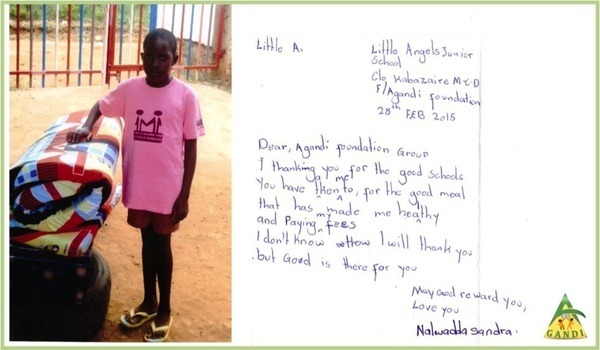 Little A.
Little Angels Junior
School
C/o Kabazaire M.C.D
F/Agandi foundation
28th FEB 2015
Dear, Agandi foundation Group
I thanking you for the good schools
You have me tken to, for the good meal
that has made me heathy
and paying my fees
I don't know how I will thank you
but Good is there for you
May God reward you,
Love you
Nalwadda sandra.
GANDI